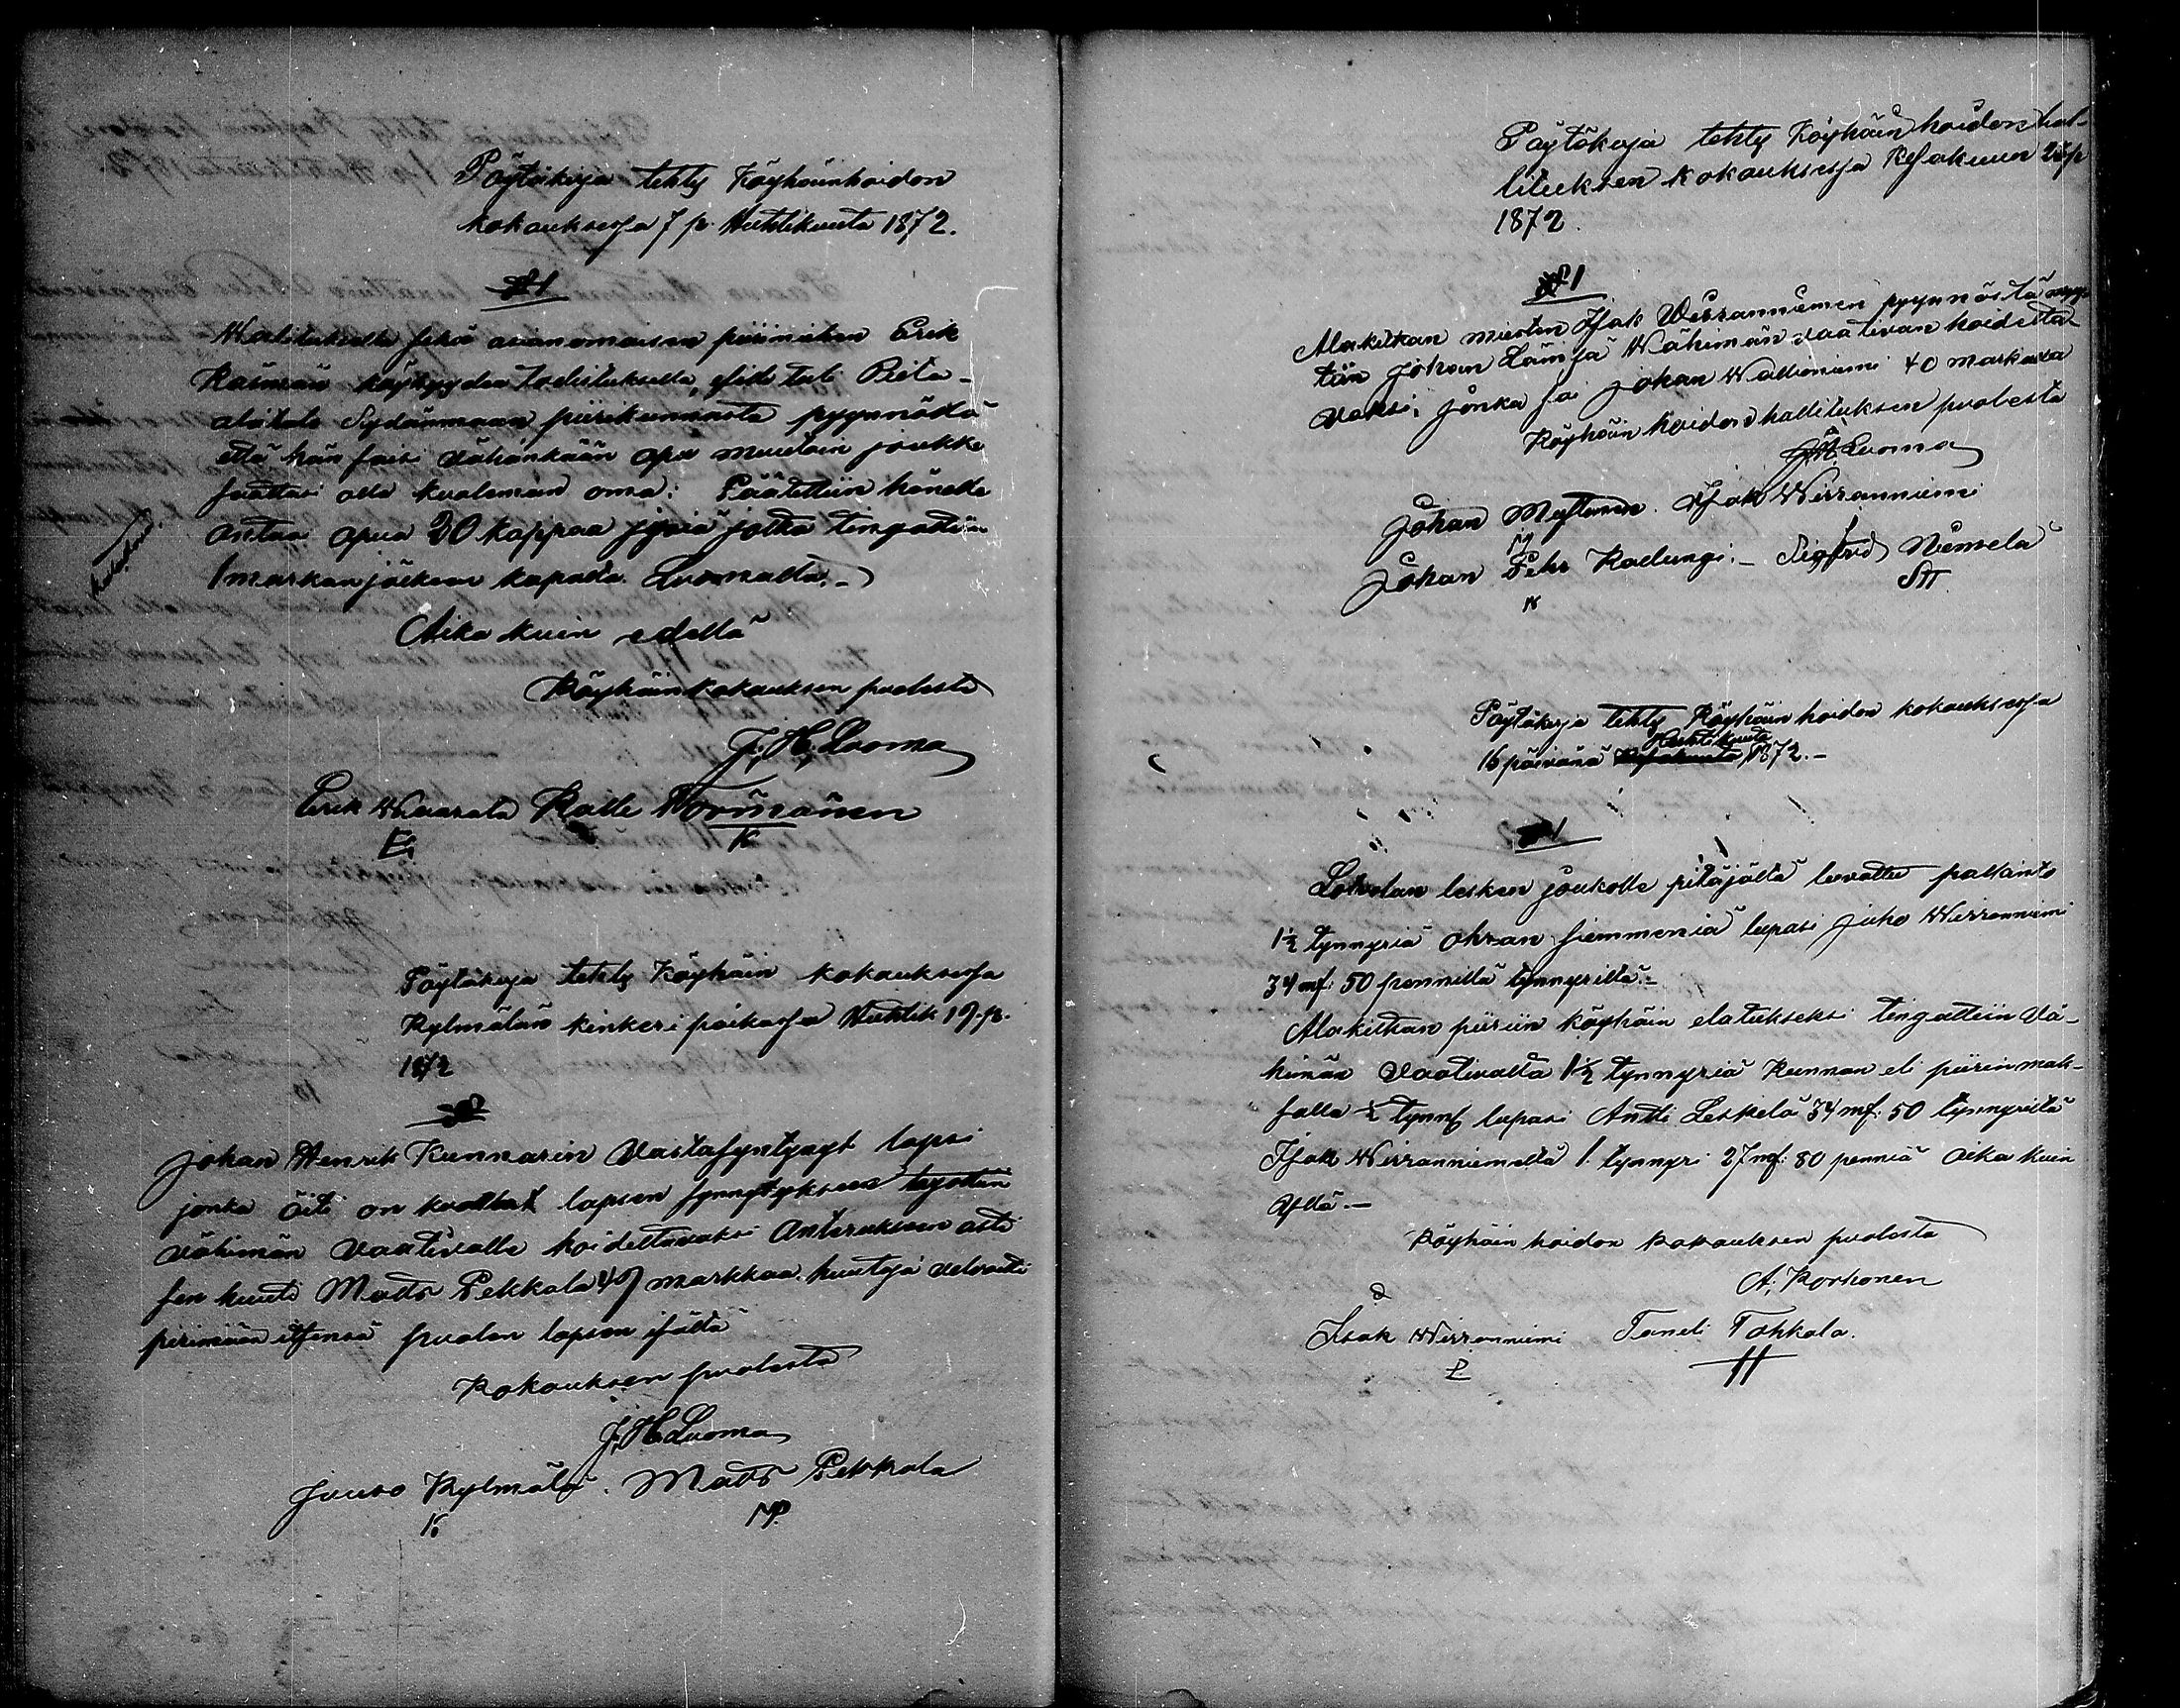 Pöytäkirja tehty Köyhäinhoidon
kokouksessa 7 p. Huhtikuuta 1872.
§ 1
Walituksella sekä asianomaisen piirimiehen Erik
köyhyyden todistuksella, esitti Pieta
Sydänmaan piirikunnasta pyynnöstä
että hän saisi vähänkään apua muutoin joukko
saattasi olla kuoleman oma: Päätettiin hänelle
antaa apua 20 kappaa jyviä jotka tingattiin
1 markan jälkeen kapalta Luomalta. -
Aika kuin edellä
Köyhäinkokouksen puolesta
J. H. Luoma
Erik Waarala Kalle Tormänen
E. K
Pöytäkirja tehty Köyhäin kokouksessa
Kylmälän kinkeri paikassa Huhtik 19 p.
1872
§
Johan Henrik Kunnarin vastasyntynyt lapsi
jonka äiti on kuollut lapsen synnytykseen
vähimän vaativalle hoidettavaksi Anterukseen asti
sen huusi Matts Pekkala 49 markkaa. huutaja velvoitti
perimään itsensä puolen lapsen isältä
Kokouksen puolesta
J. H. Luoma
Juuso Kylmälä. Matts Pekkala
K. MP.
Pöytäkirja tehty Köyhäinhoidon hal-
lituksen kokouksessa Kesäkuun
1872.
§ 1
Alakitkan miesten Isak Wirranniemen pyynnöstä
tiin Johan Vähimän vaativan hoidetta-
vaksi, jonka sai Johan Wallioniemi 40 markasta
Köyhäin hoidon hallituksen puolesta
J. H. Luoma
Johan Isak Wirranniemi
Johan Pehr Kallungi. - Sigfrid Niemelä
K
Pöytäkirja tehty Köyhäin hoidon kokouksessa
Huhtikuuta
16 päivänä Kesäkuuta 1872. -
§ 1
Lohelan lesken joukolle pitäjältä luvattu palkinto
1½ tynnyriä ohran siemmeniä lupasi Juho Wirranniemi
34 mf: 50 pennillä tynnyriltä. -
Alakitkan piiriin köyhäin elatukseksi tingattiin vä-
himän vaativalta 1½ tynnyriä Kunnan eli piirin mak-
salla ½ tynn lupasi Antti Leskelä 34 mf: 50 tynnyriltä
Isak Wirranniemeltä 1. tynnyri 27 mf: 80 penniä aika kuin
yllä. -
Köyhäin hoidon kokouksen puolesta
A. Korhonen
Isak Wirranniemi Taneli Tohkala.